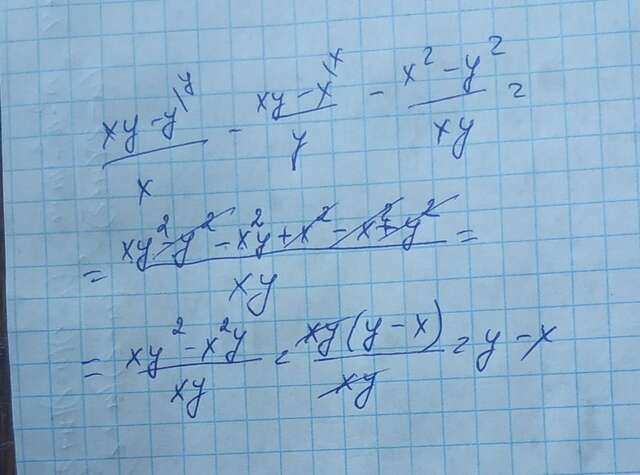 (xy - y^{\y})/x - (xy - x^{\x})/y - (x² - y²)/(xy) =
= (xy² - y² - x²y + x² - x² + y²)/(xy) =
= (xy² - x²y)/(xy) = (xy(y - x))/(xy) = y - x